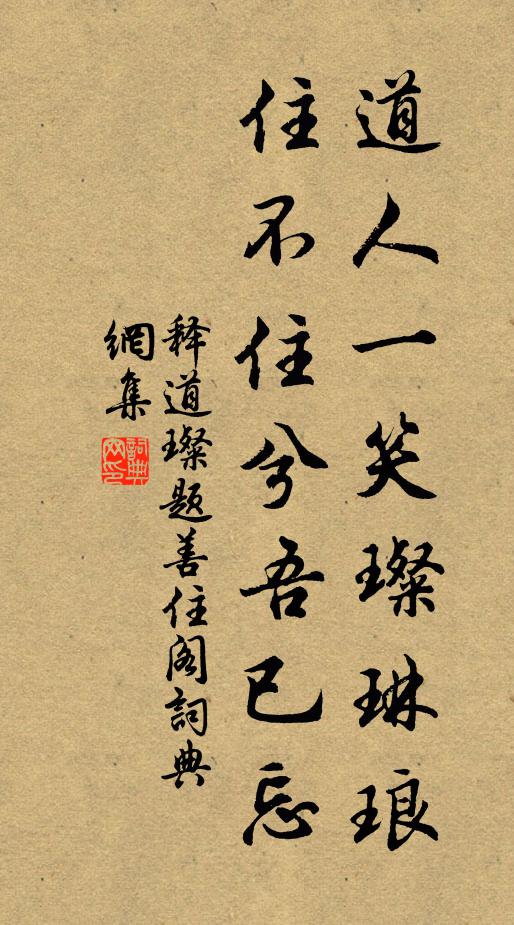 道人一笑璨琳琅
住不住兮吾已忘
释道璨题善住阁詞典
網集
詞典网印